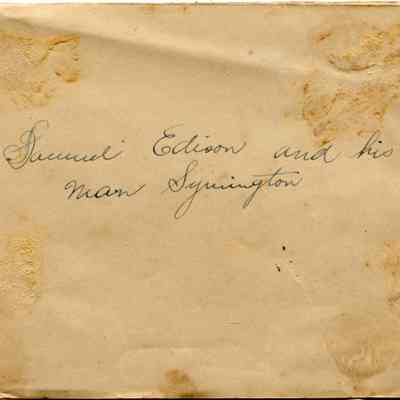 Samuel Edison and his
man Symington